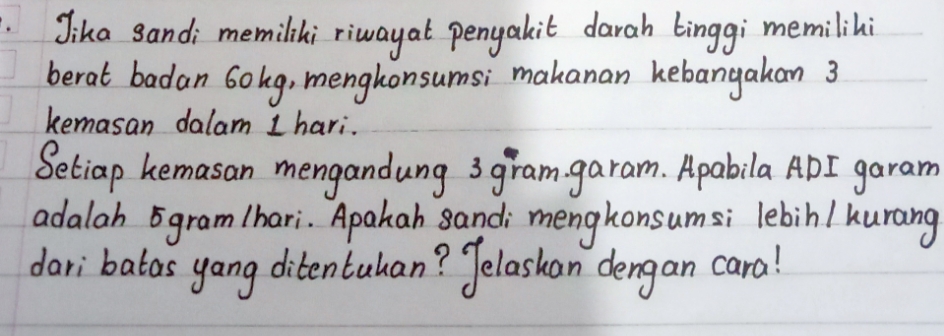 Jika Sandi memiliki riwayat penyakit darah tinggi memiliki
berat badan 60kg, mengkonsumsi makanan kebanyakan 3
kemasan dalam 1 hari.
Setiap kemasan mengandung 3 gram garam. Apabila ADI garam
adalah 5 gram/hari. Apakah Sandi mengkonsumsi lebih/kurang
dari batas yang ditentukan? Jelaskan dengan cara!